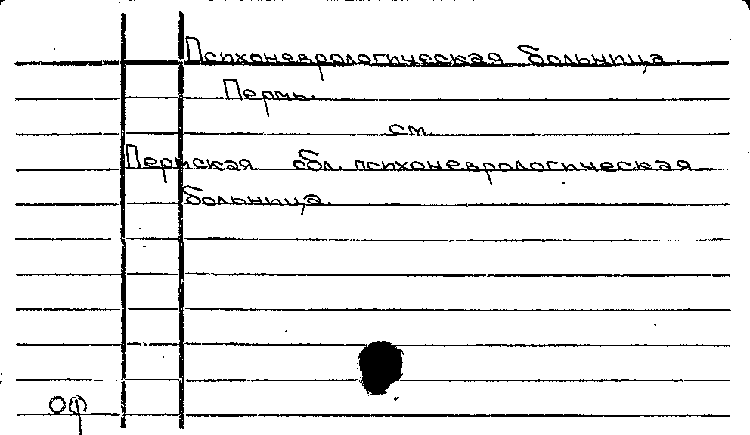 Психоневрологическая больница.
Пермь.
см.
Пермская обл. психоневрологическая
больница.
ОФ